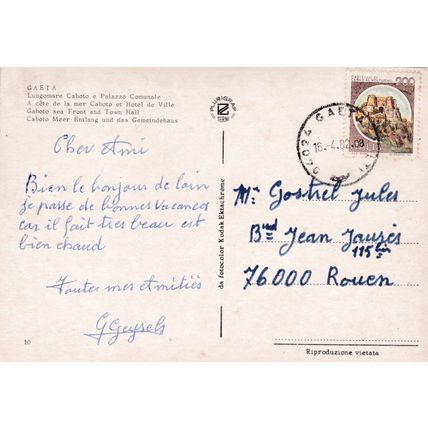 GAETA
Lungomare Caboto e Palazzo Comunale
A côte de la mer Caboto et Hotel de Ville
Gaboto sea Front and Town Hall
Caboto Meer Entlang und das Gemeindehaus
PLURIGRAF
TERNI
04024 GAETA
16.-4.82
200
Cher Ami
Bien le bonjour de loin
je passe de bonnes vacances
car il fait très beau et
bien chaud
Toutes mes Amitiés
G Geysels
da fotocolor Kodak Ektachrome
Mr Gostiel Jules
Bvd Jean Jaurès
115 bis
76.000 Rouen
10
Riproduzione vietata